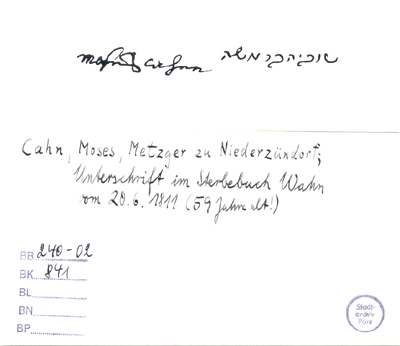 Cahn, Moses, Metzger zu Niederzündorf;
Unterschrift im Sterbebuch Wahn
vom 20.6.1811 (59 Jahre alt!)
BB 240-02
BK 841
BL
BN
BP
Stadt-
archiv
Porz